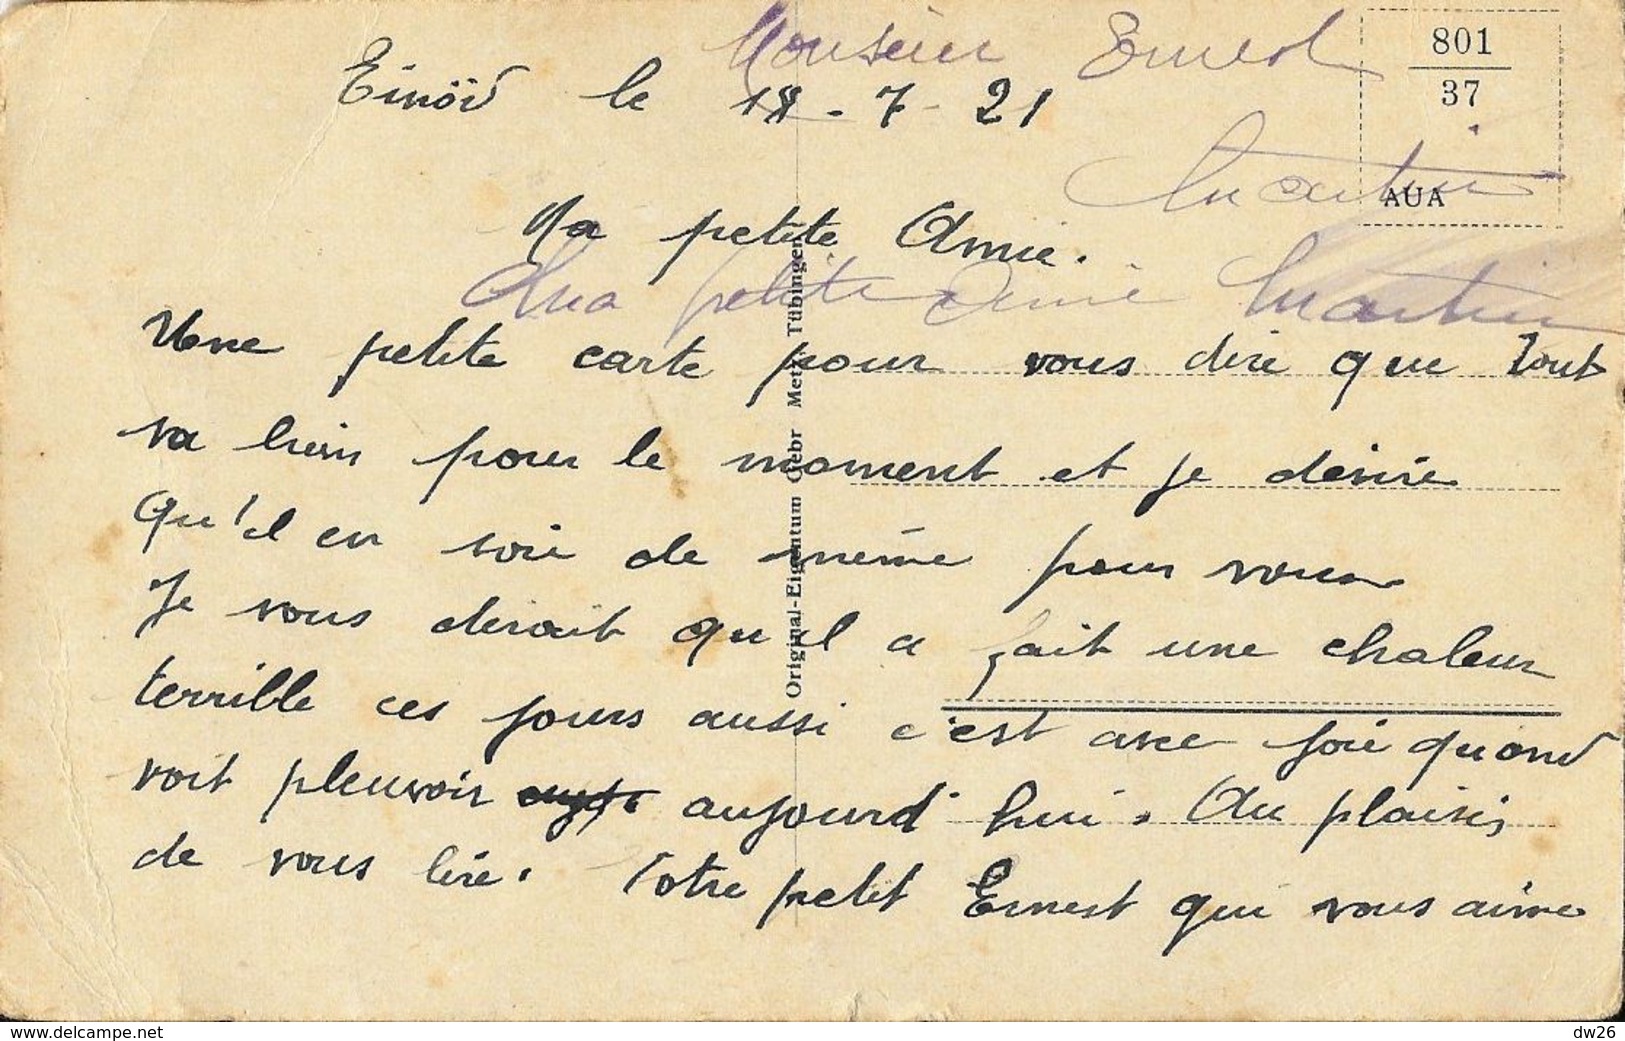 Monsieur Ernest
801
37
Einöd le 18-7-21
Martin
AUA
Ma petite Amie.
Ma petite Amie Martin
Une petite carte pour vous dire que tout
va bien pour le moment et je désire
Qu'il en soie de même pour vous
Je vous dirait qu'il a fait une chaleur
terrible ces jours aussi c'est avec joie quand
voit pleuvoir aujourd'hui. Au plaisir
de vous lire. Votre petit Ernest qui vous aime
Original-Eigentum Gebr Metz, Tübingen
www.delcampe.net
dw26